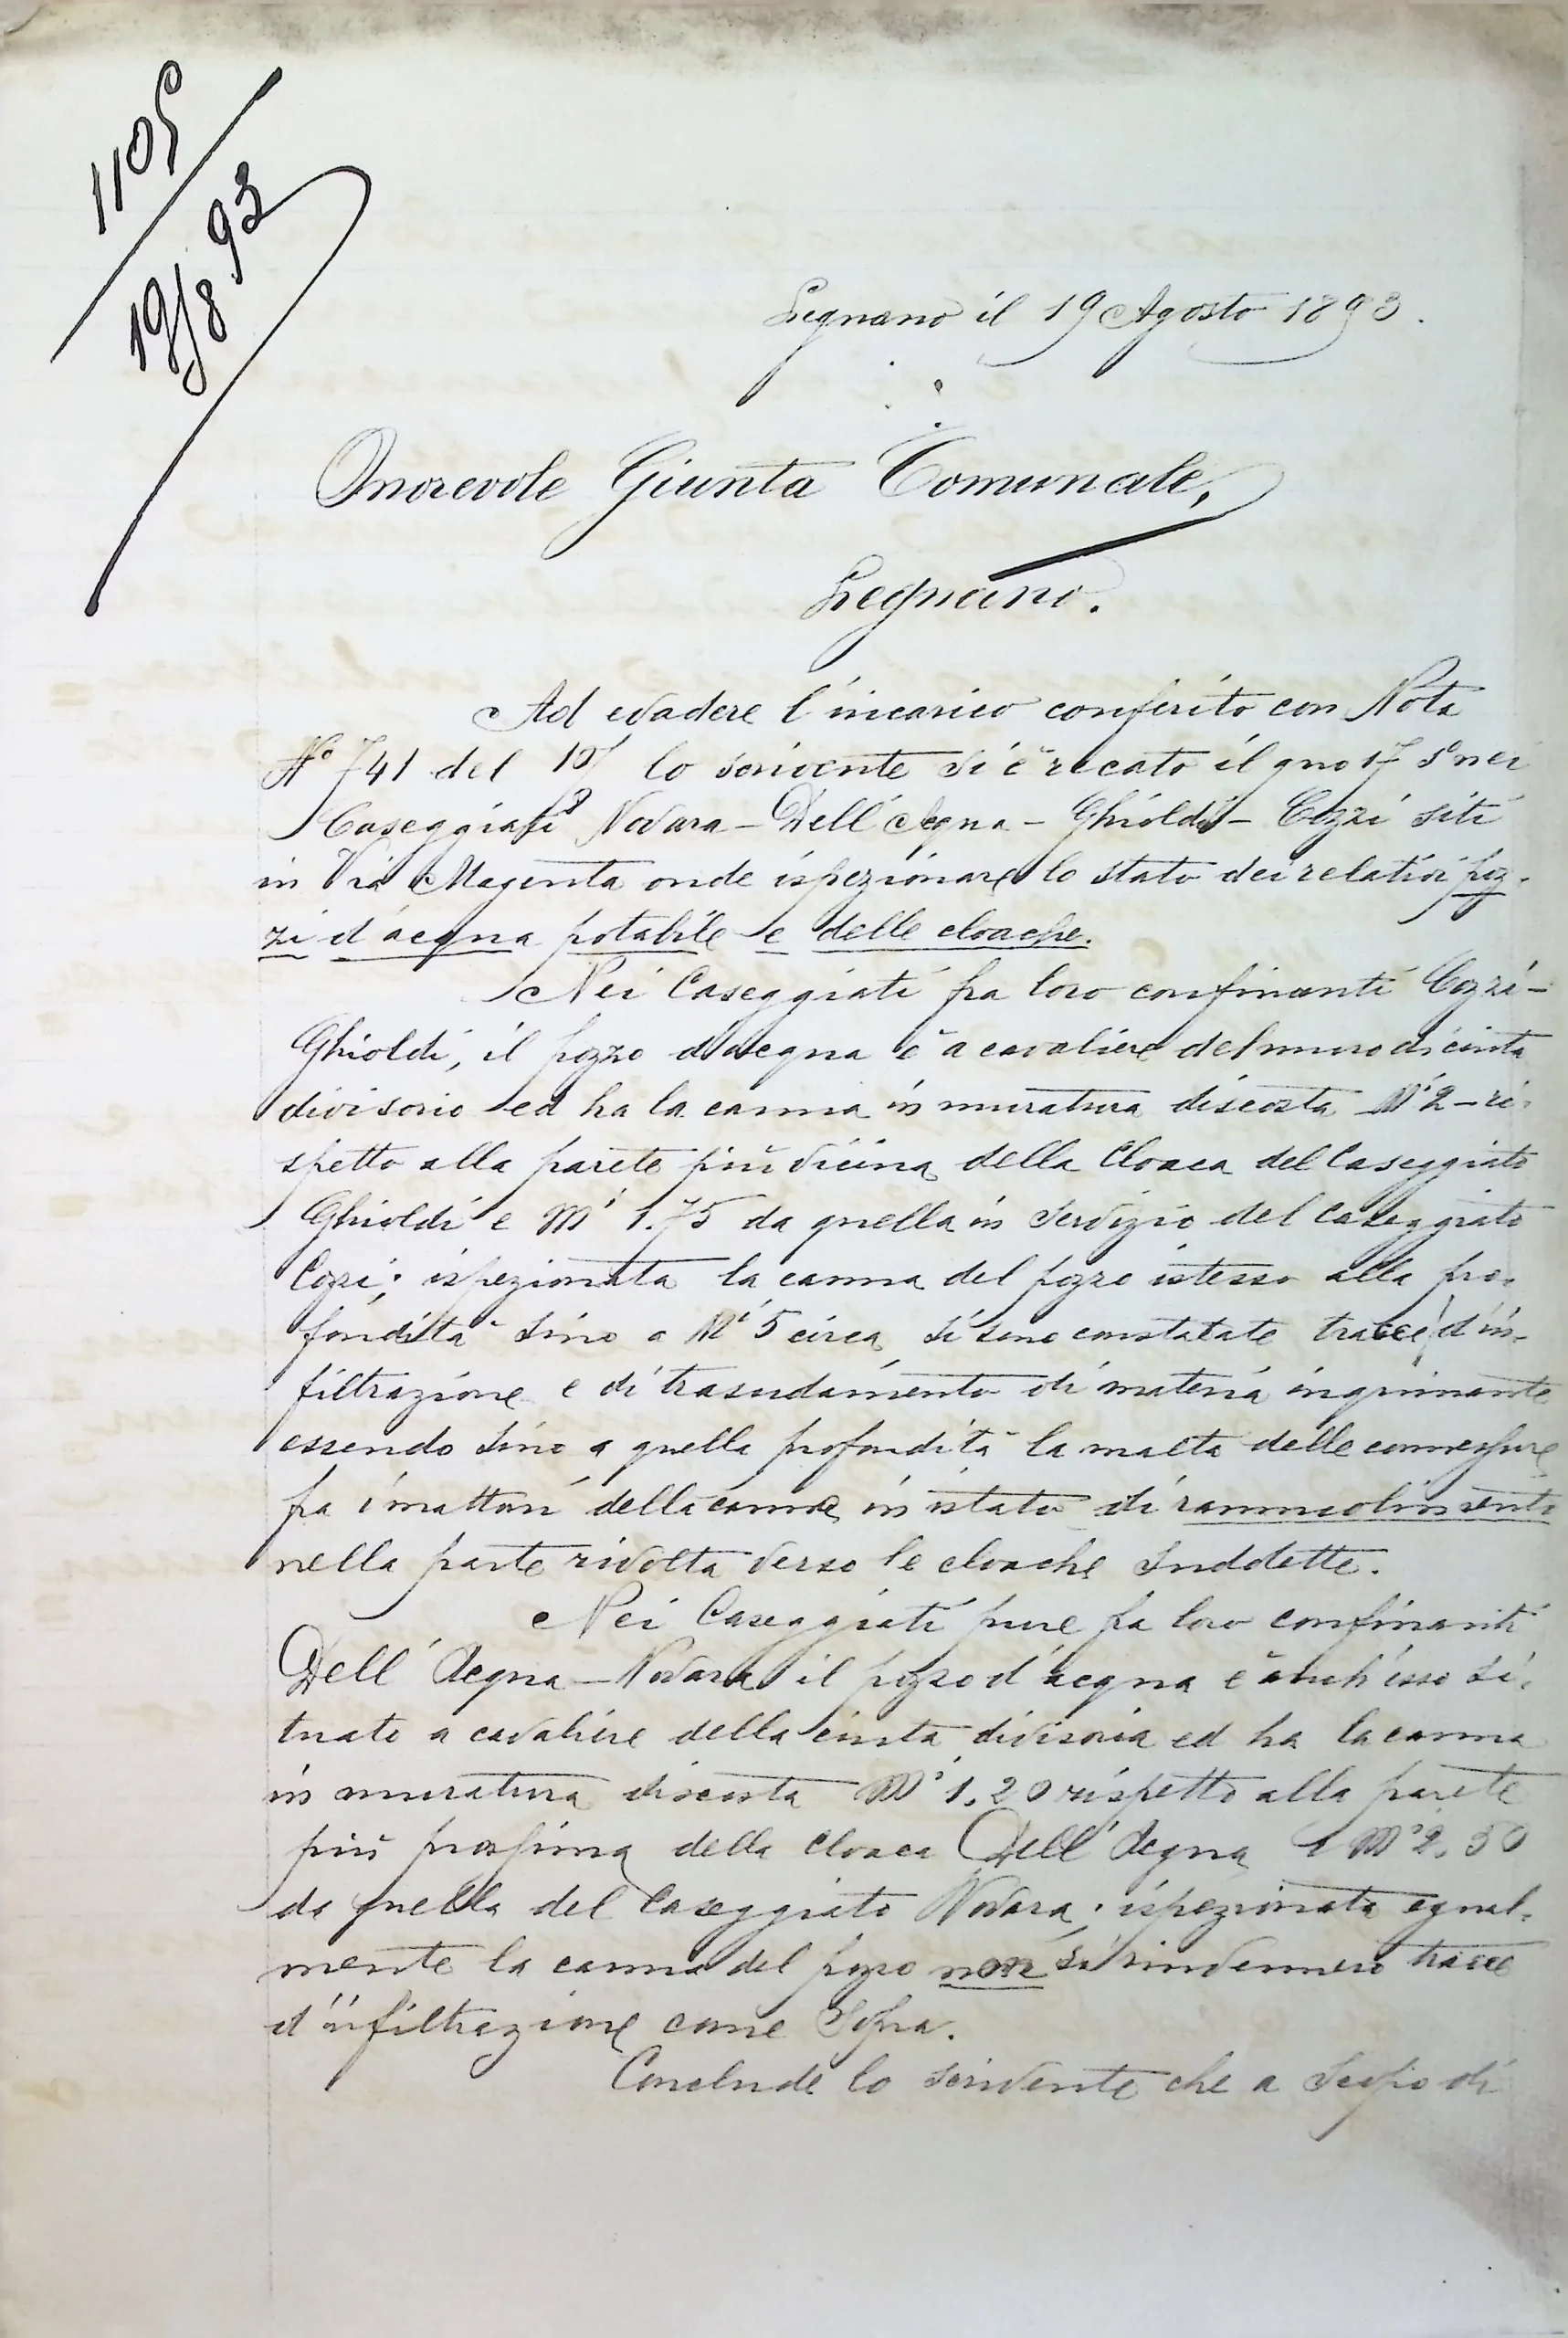 1105
19/8 93
Legnano il 19 Agosto 1893.
Onorevole Giunta Comunale,
Legnano.
Ad evadere l'incarico conferito con Nota
N° 741 del lo scrivente si è recato il gno 17 nei
Caseggiati Novara - Dell'Acqua - Ghioldi - Cozzi siti
in Via Magenta onde ispezionare lo stato dei relativi poz-
zi d'acqua potabile e delle cloache.
Nei Caseggiati fra loro confinanti Cozzi -
Ghioldi, il pozzo d'acqua è a cavaliere del muro di cinta
divisorio ed ha la canna in muratura discosta Mi 2 - ri-
spetto alla parete più vicina della Cloaca del Caseggiato
Ghioldi e Mi 1.75 da quella in servizio del Caseggiato
Cozzi; ispezionata la canna del pozzo istesso alla pro-
fondità sino a Mi 5 circa si sono constatate traccie d'in-
filtrazione e di trasudamento di materia inquinante
essendo sino a quella profondità la malta delle connessure
fra i mattoni della canna in istato di rammolimento
nella parte rivolta verso le cloache suddette.
Nei Caseggiati pure fra loro confinanti
Dell'Acqua - Novara il pozzo d'acqua è anch'esso si-
tuato a cavaliere della cinta divisoria ed ha la canna
in muratura discosta Mi 1,20 rispetto alla parete
più prossima della cloaca Dell'Acqua e Mi 2,50
da quella del Caseggiato Novara; ispezionata egual-
mente la canna del pozzo non si rinvennero traccie
d'infiltrazione come sopra.
Conclude lo scrivente che a scopo di